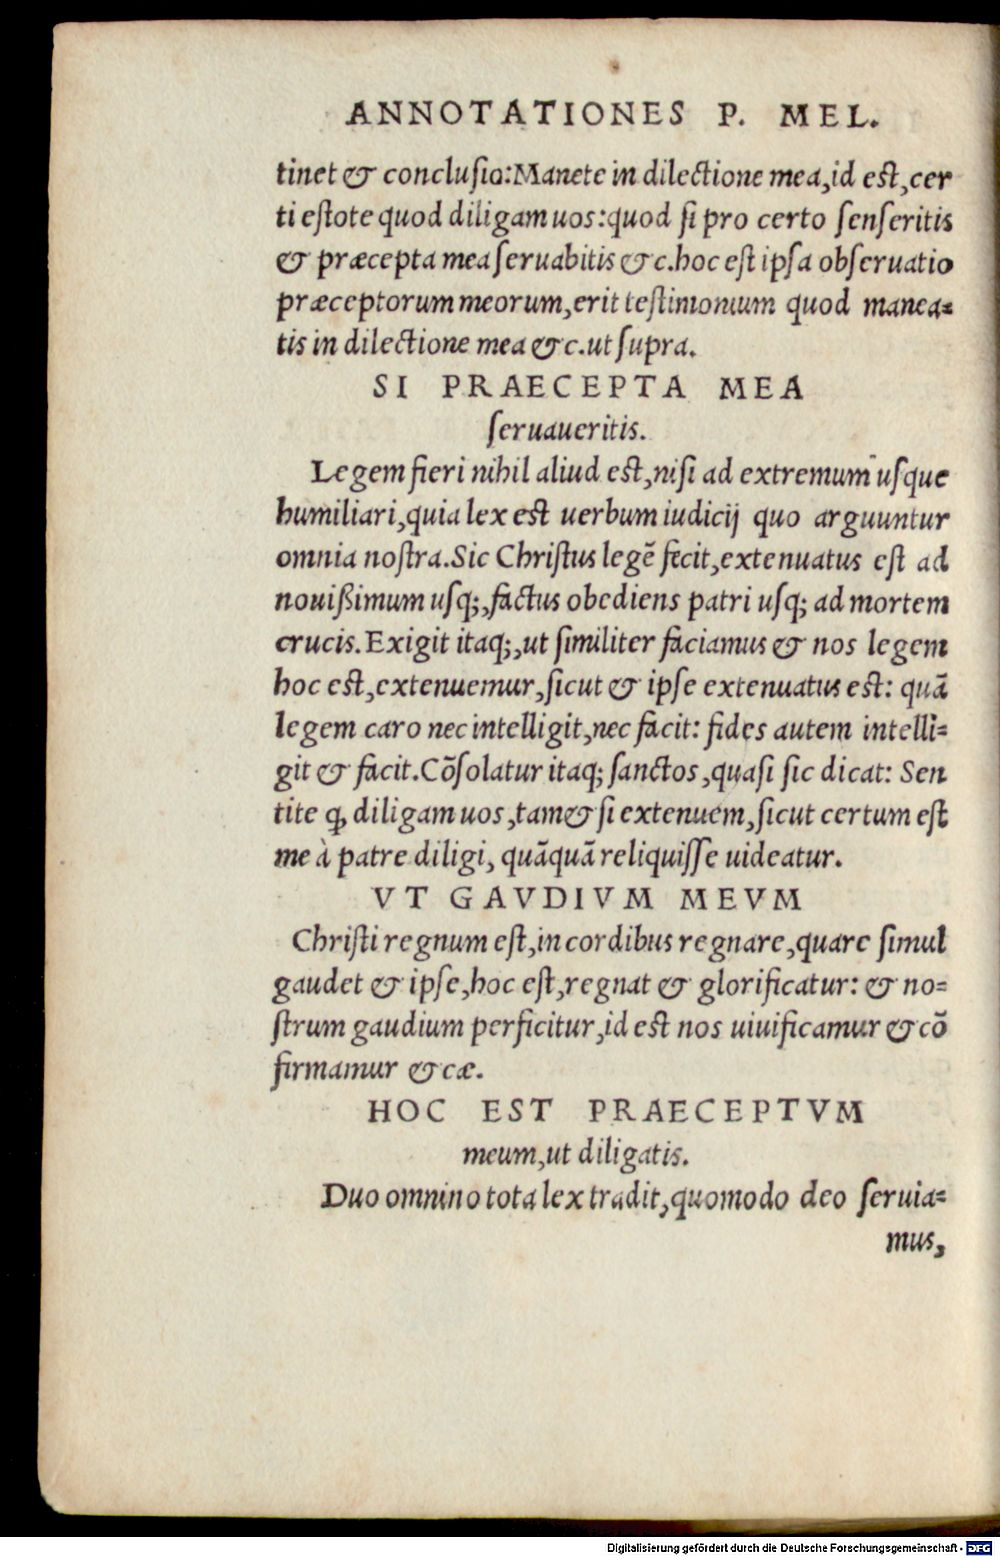 ANNOTATIONES P. MEL.
tinet & conclusio: Manete in dilectione mea, id est, cer
ti estote quod diligam uos: quod si pro certo senseritis
& præcepta mea seruabitis &c. hoc est ipsa obseruatio
præceptorum meorum, erit testimonium quod manea=
tis in dilectione mea &c. ut supra.
SI PRAECEPTA MEA
seruaueritis.
Legem fieri nihil aliud est, nisi ad extremum usque
humiliari, quia lex est uerbum iudicij quo arguuntur
omnia nostra. Sic Christus legē fecit, extenuatus est ad
nouißimum usq;, factus obediens patri usq; ad mortem
crucis. Exigit itaq;, ut similiter faciamus & nos legem
hoc est, extenuemur, sicut & ipse extenuatus est: quā
legem caro nec intelligit, nec facit: fides autem intelli=
git & facit. Cōsolatur itaq; sanctos, quasi sic dicat: Sen
tite ꝙ diligam uos, tam&si extenuem, sicut certum est
me à patre diligi, quāquā reliquisse uideatur.
VT GAVDIVM MEVM
Christi regnum est, in cordibus regnare, quare simul
gaudet & ipse, hoc est, regnat & glorificatur: & no=
strum gaudium perficitur, id est nos uiuificamur & cō
firmamur &cæ.
HOC EST PRAECEPTVM
meum, ut diligatis.
Duo omnino tota lex tradit, quomodo deo seruia=
mus,
Digitalisierung gefördert durch die Deutsche Forschungsgemeinschaft - DFG